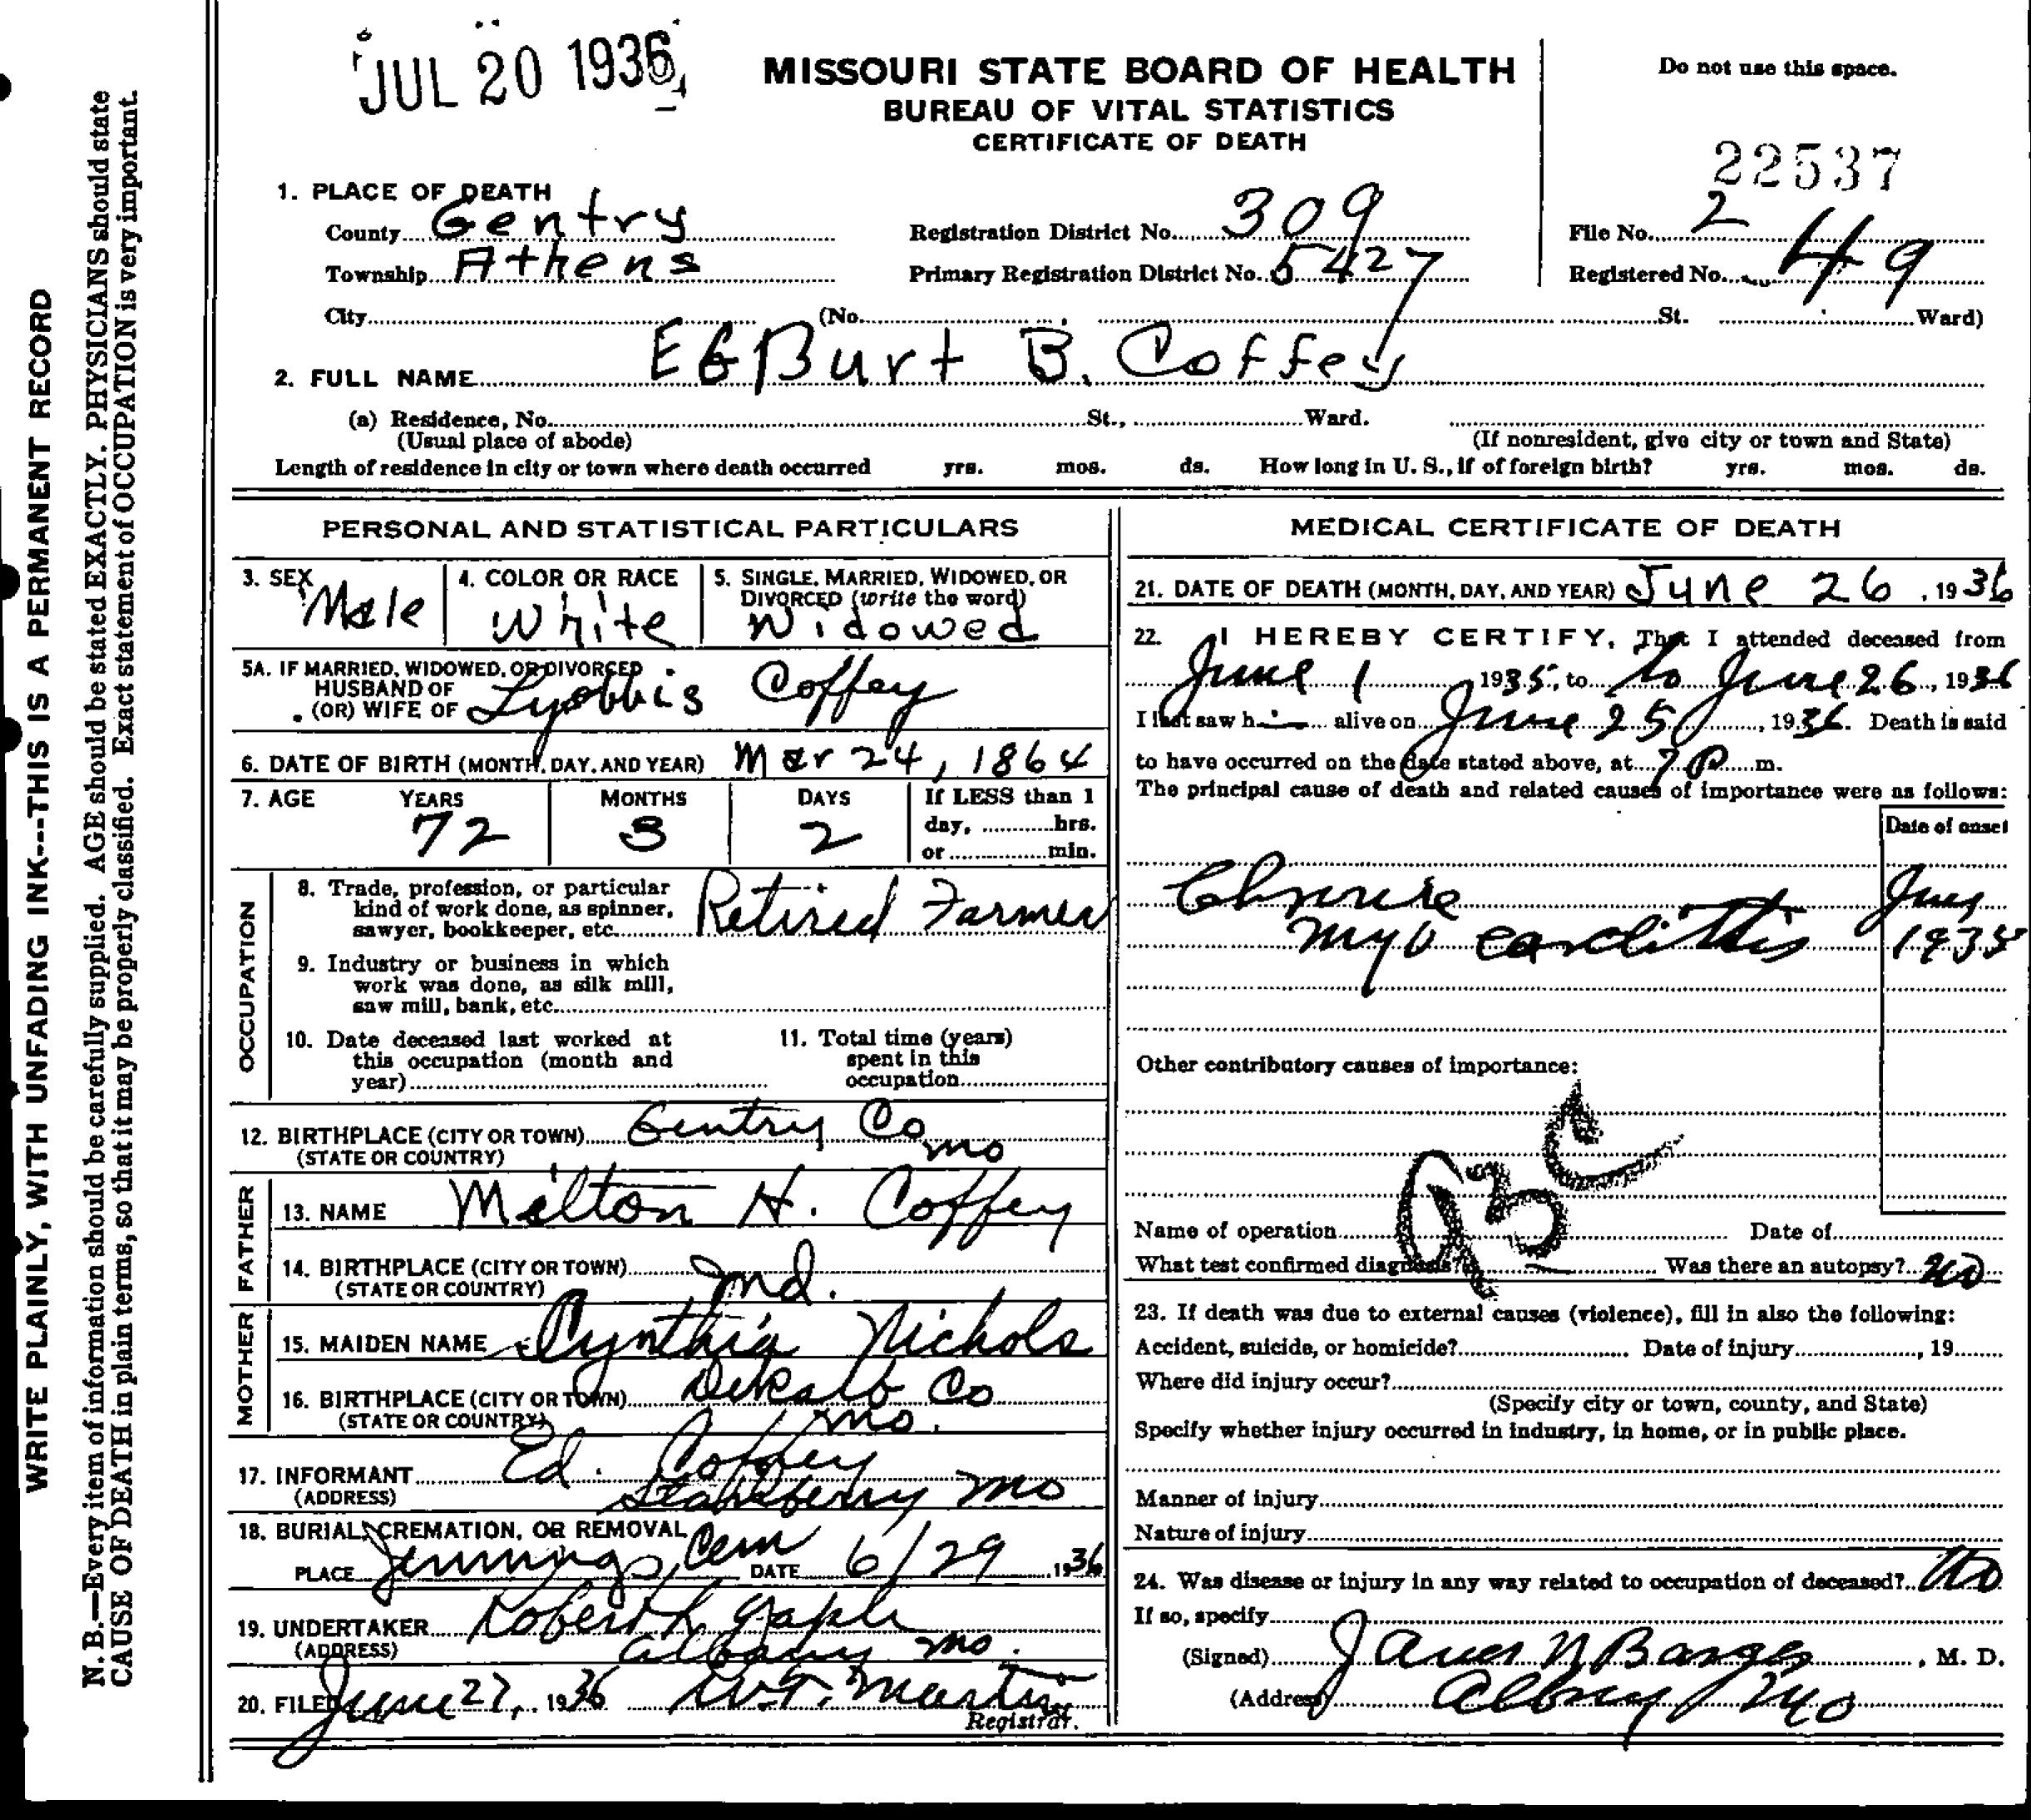 JUL 20 1936
MISSOURI STATE BOARD OF HEALTH
BUREAU OF VITAL STATISTICS
CERTIFICATE OF DEATH
Do not use this space.
22537
1. PLACE OF DEATH
County Gentry Registration District No. 309 File No. 2
Township Athens Primary Registration District No. 5427 Registered No. 49
City (No. St. Ward)
2. FULL NAME EGBurt B. Coffey
(a) Residence, No. St., Ward.
(Usual place of abode) (If nonresident, give city or town and State)
Length of residence in city or town where death occurred yrs. mos. ds. How long in U. S., if of foreign birth? yrs. mos. ds.
PERSONAL AND STATISTICAL PARTICULARS
3. SEX Male
4. COLOR OR RACE White
5. SINGLE, MARRIED, WIDOWED, OR
DIVORCED (write the word)
Widowed
5A. IF MARRIED, WIDOWED, OR DIVORCED
HUSBAND OF
(OR) WIFE OF Coffey
6. DATE OF BIRTH (MONTH, DAY, AND YEAR) Mar 24, 1864
7. AGE YEARS MONTHS DAYS If LESS than 1
72 3 2 day, hrs.
or min.
OCCUPATION
8. Trade, profession, or particular
kind of work done, as spinner,
sawyer, bookkeeper, etc. Retired Farmer
9. Industry or business in which
work was done, as silk mill,
saw mill, bank, etc.
10. Date deceased last worked at
this occupation (month and
year)
11. Total time (years)
spent in this
occupation
12. BIRTHPLACE (CITY OR TOWN) Gentry Co
(STATE OR COUNTRY) Mo
FATHER
13. NAME Milton H. Coffey
14. BIRTHPLACE (CITY OR TOWN)
(STATE OR COUNTRY) Ind.
MOTHER
15. MAIDEN NAME Cynthia Nichols
16. BIRTHPLACE (CITY OR TOWN) Dekalb Co
(STATE OR COUNTRY) Mo.
17. INFORMANT Ed. Coffey
(ADDRESS) Stanberry Mo
18. BURIAL, CREMATION, OR REMOVAL
PLACE Jennings Cem DATE 6/29 1936
19. UNDERTAKER Robert
(ADDRESS) Albany Mo.
20. FILED June 27, 1936 W.T. Martin
Registrar.
MEDICAL CERTIFICATE OF DEATH
21. DATE OF DEATH (MONTH, DAY, AND YEAR) June 26, 1936
22. I HEREBY CERTIFY, That I attended deceased from
June 1 1935, to to June 26, 1936
I last saw h alive on June 25, 1936. Death is said
to have occurred on the date stated above, at 7 P m.
The principal cause of death and related causes of importance were as follows:
Date of onset
Chronic
Myo carditis
1935
Other contributory causes of importance:
93C
Name of operation Date of
What test confirmed diagnosis? Was there an autopsy? no
23. If death was due to external causes (violence), fill in also the following:
Accident, suicide, or homicide? Date of injury , 19
Where did injury occur?
(Specify city or town, county, and State)
Specify whether injury occurred in industry, in home, or in public place.
Manner of injury
Nature of injury
24. Was disease or injury in any way related to occupation of deceased? No
If so, specify
(Signed) N Barger, M. D.
(Address) Albany Mo
WRITE PLAINLY, WITH UNFADING INK---THIS IS A PERMANENT RECORD
N. B.—Every item of information should be carefully supplied. AGE should be stated EXACTLY. PHYSICIANS should state
CAUSE OF DEATH in plain terms, so that it may be properly classified. Exact statement of OCCUPATION is very important.